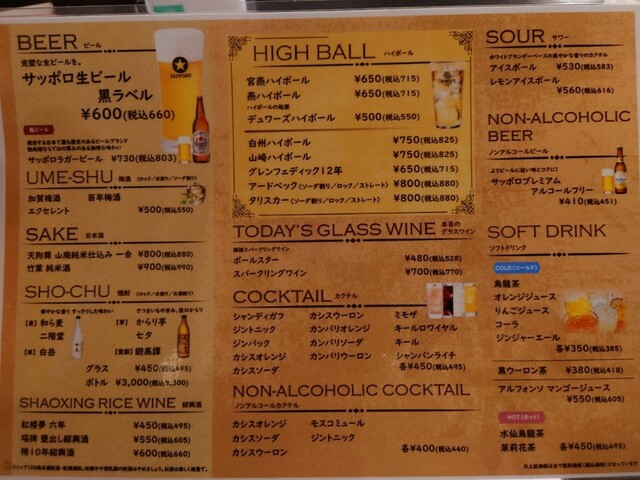 BEER ビール
完璧な生ビールを。
サッポロ生ビール
黒ラベル
¥600(税込660)
瓶ビール
サッポロラガービール ¥730(税込803)
UME-SHU 梅酒 (ロック/水割り/ソーダ割り)
加賀梅酒 百年梅酒
エクセレント ¥500(税込550)
SAKE 日本酒
天狗舞 山廃純米仕込み 一合 ¥800(税込880)
竹葉 純米酒 ¥900(税込990)
SHO-CHU 焼酎 (ロック/水割り/お湯割り)
華やかな香り すっきりした味わい
【麦】 和ら麦
二階堂
【米】 白岳
からり芋
七夕
鍛高譚
グラス ¥450(税込495)
ボトル ¥3,000(税込3,300)
SHAOXING RICE WINE 紹興酒
紅楼夢 六年 ¥450(税込495)
塔牌 甕出し紹興酒 ¥550(税込605)
陳10年紹興酒 ¥600(税込660)
HIGH BALL ハイボール
宮燕ハイボール ¥650(税込715)
燕ハイボール ¥650(税込715)
ハイボールの起源
デュワーズハイボール ¥500(税込550)
白州ハイボール ¥750(税込825)
山崎ハイボール ¥750(税込825)
グレンフェディック12年 ¥650(税込715)
アードベック(ソーダ割り/ロック/ストレート) ¥800(税込880)
タリスカー(ソーダ割り/ロック/ストレート) ¥800(税込880)
TODAY'S GLASS WINE 本日のグラスワイン
ポールスター ¥480(税込528)
スパークリングワイン ¥700(税込770)
COCKTAIL カクテル
シャンディガフ カシスウーロン ミモザ
ジントニック カンパリオレンジ キールロワイヤル
ジンバック カンパリソーダ キール
カシスオレンジ カンパリウーロン シャンパンライチ
カシスソーダ 各¥450(税込495)
NON-ALCOHOLIC COCKTAIL
ノンアルコールカクテル
カシスオレンジ モスコミュール
カシスソーダ ジントニック
カシスウーロン 各¥400(税込440)
SOUR サワー
ホワイトブランデーベースの爽やかな香りのカクテル
アイスボール ¥530(税込583)
レモンアイスボール
¥560(税込616)
NON-ALCOHOLIC
BEER
ノンアルコールビール
よりビールに近い味とコクに!
サッポロプレミアム
アルコールフリー
¥410(税込451)
SOFT DRINK
ソフトドリンク
COLD(コールド)
烏龍茶
オレンジジュース
りんごジュース
コーラ
ジンジャーエール
各¥350(税込385)
黒ウーロン茶 ¥380(税込418)
アルフォンソ マンゴージュース
¥550(税込605)
HOT(ホット)
水仙烏龍茶
茉莉花茶 各¥450(税込495)